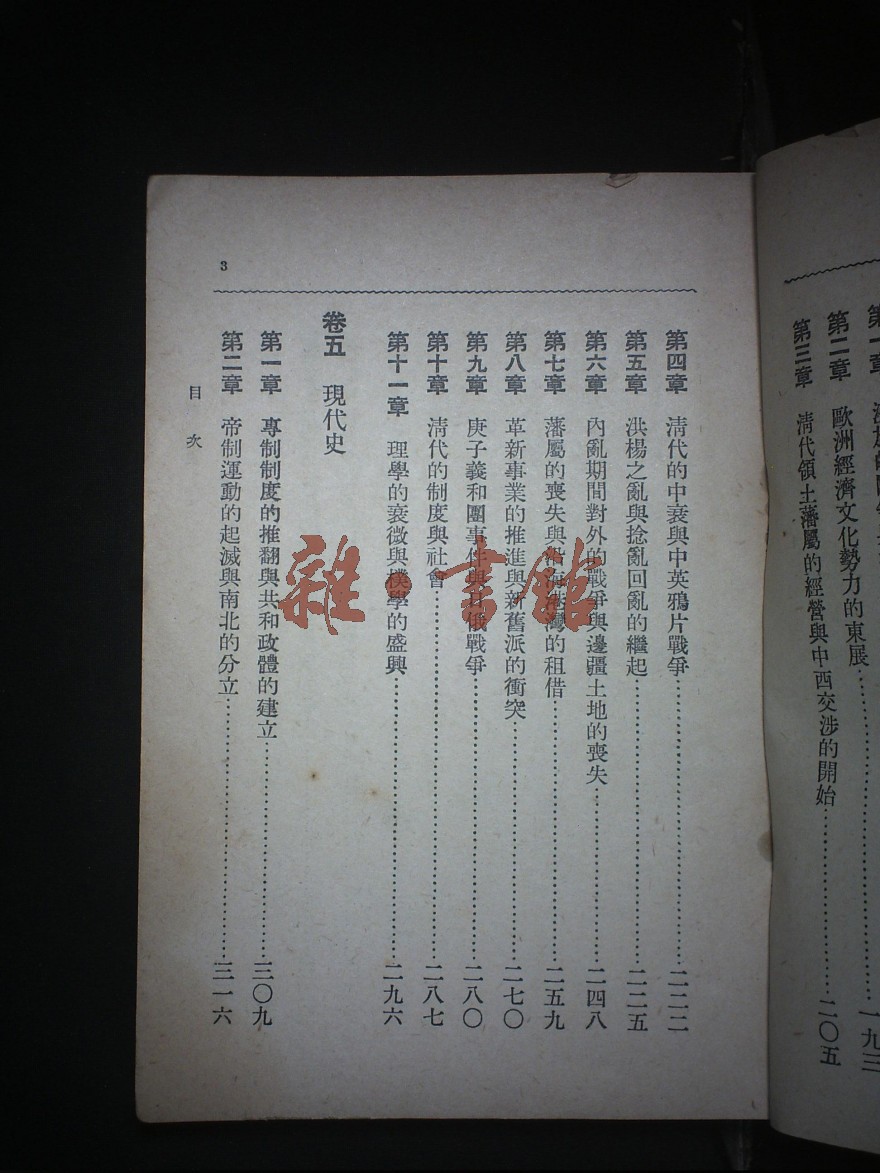 第二章 歐洲經濟文化勢力的東展
第三章 清代領土藩屬的經營與中西交涉的開始 二〇五
第四章 清代的中衰與中英鴉片戰爭 二二二
第五章 洪楊之亂與捻亂回亂的繼起 二二五
第六章 內亂期間對外的戰爭與邊疆土地的喪失 二四八
第七章 藩屬的喪失與沿海港灣的租借 二五九
第八章 革新事業的推進與新舊派的衝突 二七〇
第九章 庚子義和團事件與日俄戰爭 二八〇
第十章 清代的制度與社會 二八七
第十一章 理學的衰微與樸學的盛興 二九六
卷五 現代史
第一章 專制制度的推翻與共和政體的建立 三〇九
第二章 帝制運動的起滅與南北的分立 三一六
目次
3
雜·書館